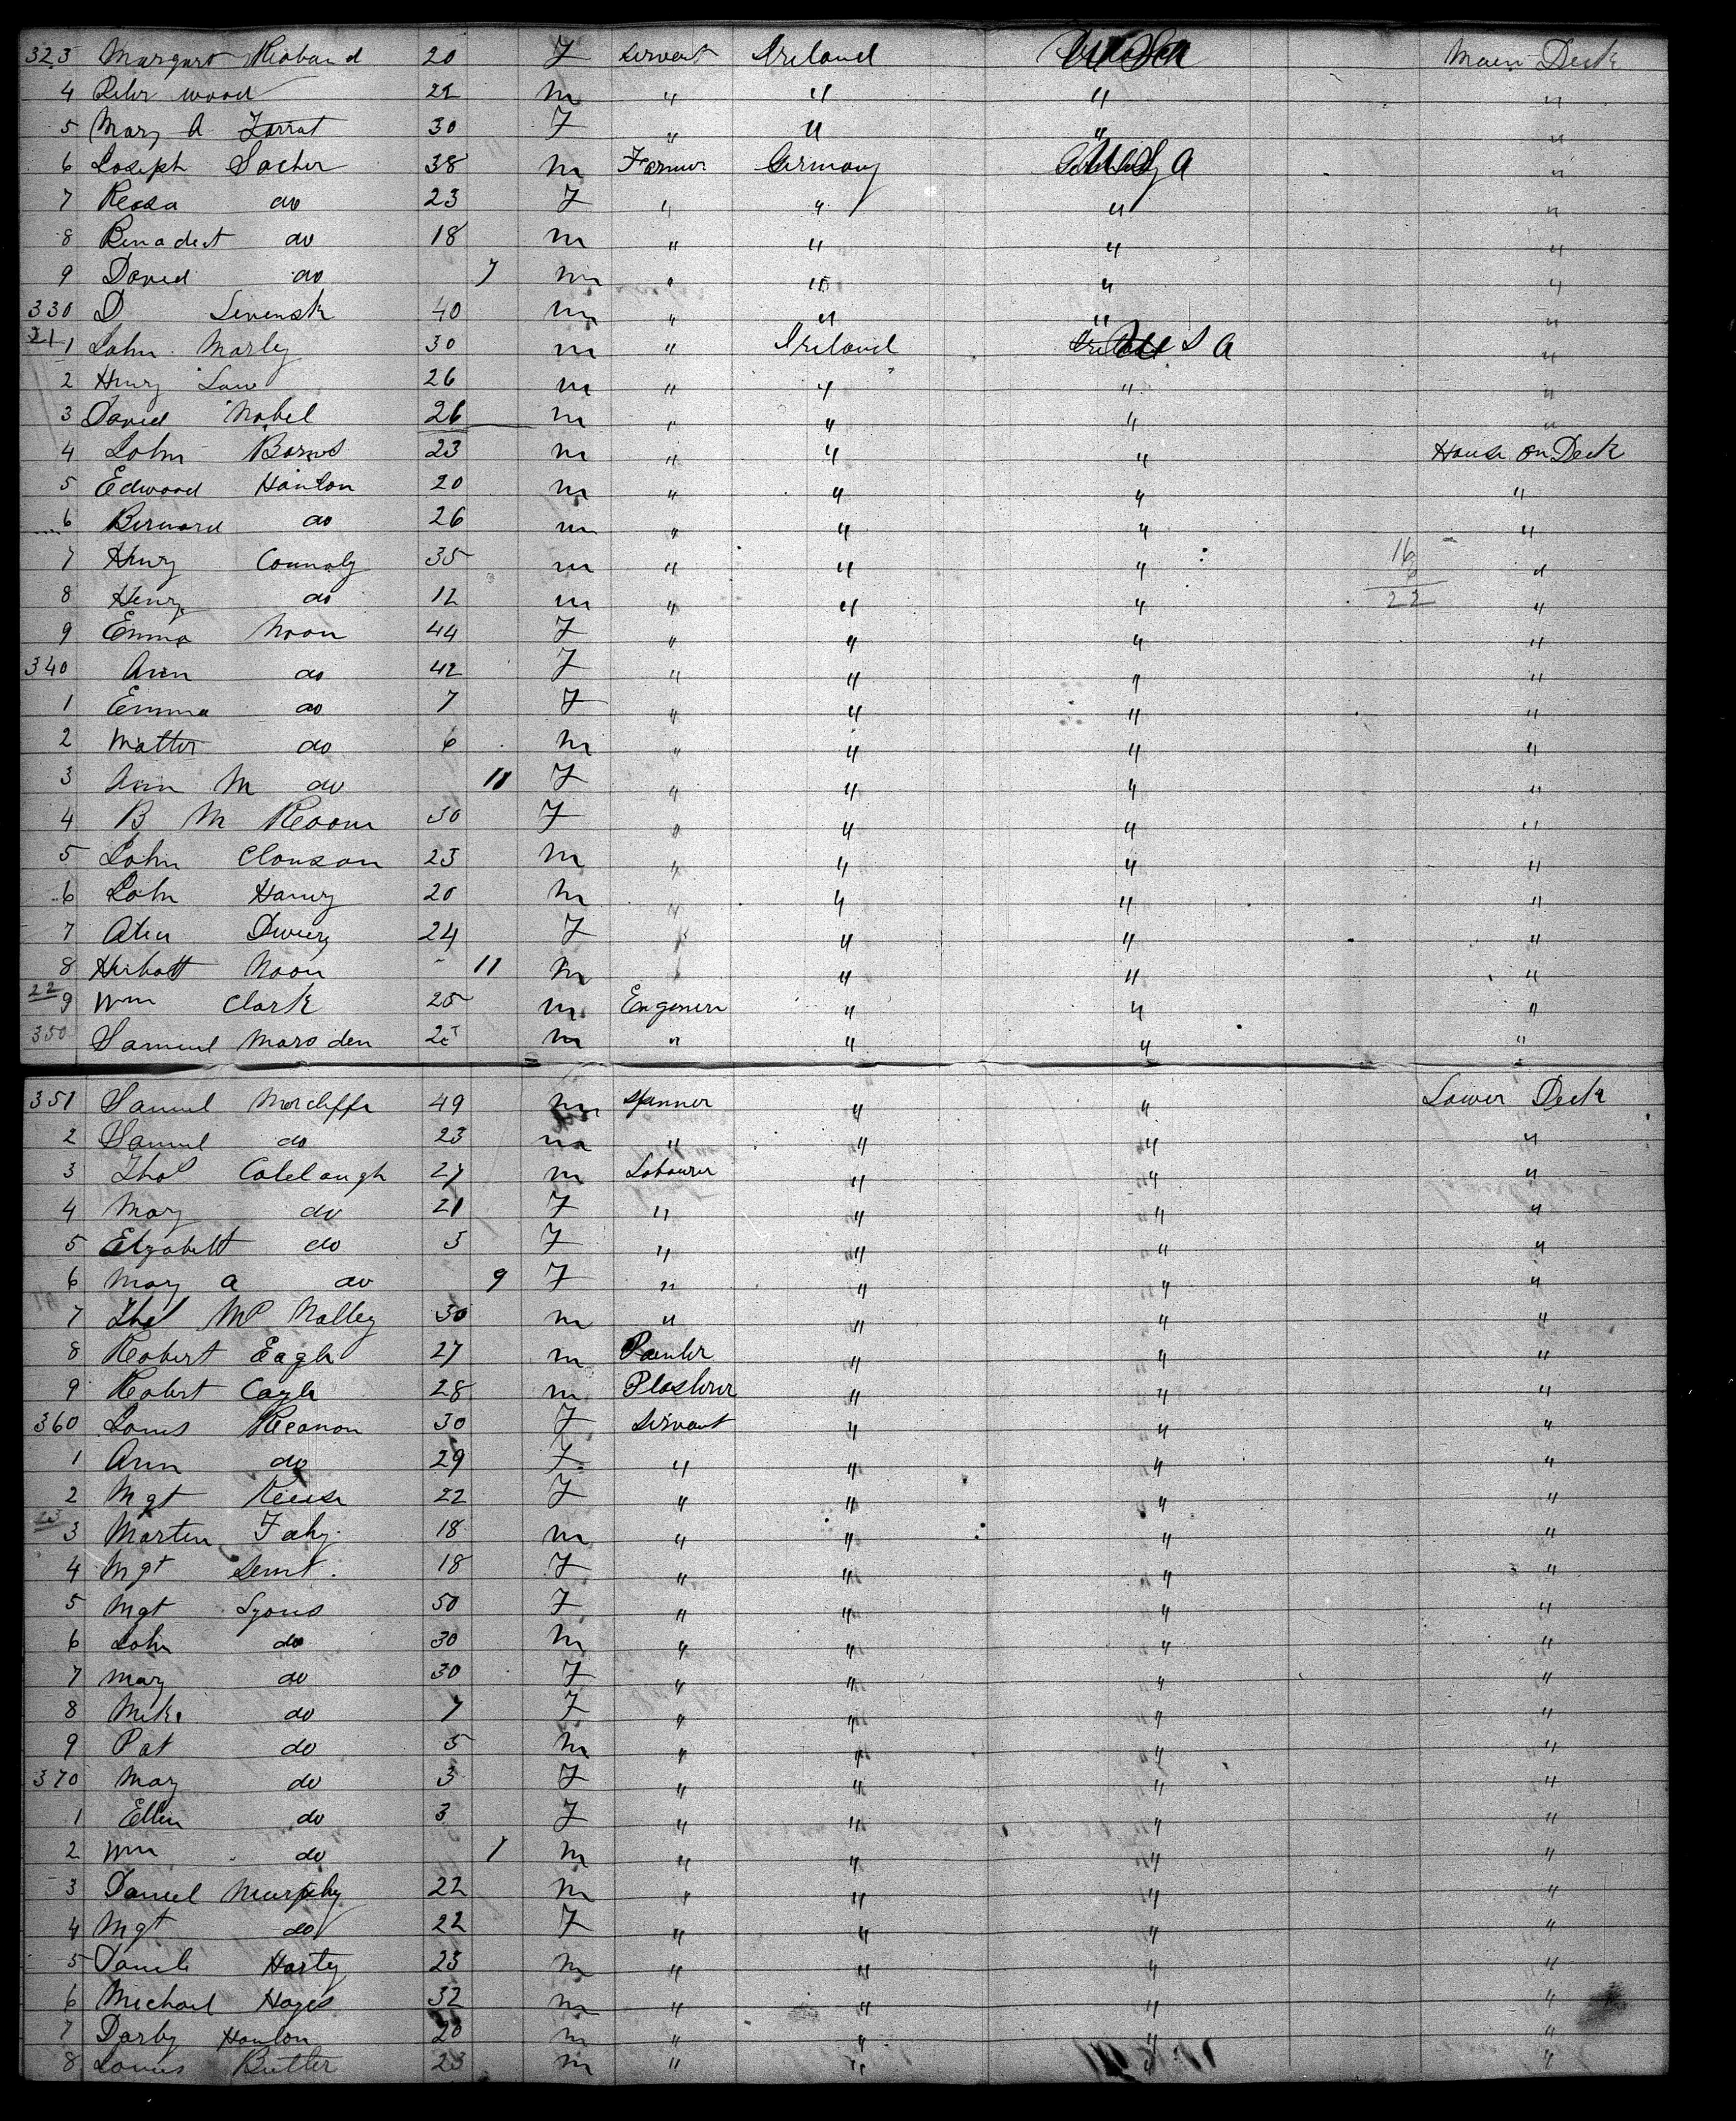 323 Margart Rioband 20 F Servent Ireland USA Main Deck
4 Peter wood 22 m " " " "
5 Mary A Farrat 30 F " " " "
6 Joseph Sacher 38 m Farmer Germany USA "
7 Rosa do 23 F " " " "
8 Benadect do 18 m " " " "
9 David do 7 m " " " "
330 D Levensk 40 m " " " "
21
1 John Marley 30 m " Ireland U S A "
2 Henry Law 26 m " " " "
3 David Nobel 26 m " " " "
4 John Barns 23 m " " " House on Deck
5 Edward Hanlon 20 m " " " "
6 Bernard do 26 m " " " "
7 Henry Connoly 35 m " " " 16 "
6
8 Henry do 12 m " " " 22 "
9 Emma Noon 44 F " " " "
340 Ann do 42 F " " " "
1 Emma do 7 F " " " "
2 Matter do 6 m " " " "
3 Ann M do 11 F " " " "
4 B M Room 30 F " " " "
5 John Clonson 23 m " " " "
6 John Harvy 20 m " " " "
7 Dwiry 24 F " " " "
8 Noon 11 m " " " "
22
9 Wm Clark 25 m Engenere " " "
350 Samuel Marsden 25 m " " " "
351 Samuel Morcliffe 49 m Spinner " " Lower Deck
2 Samuel do 23 m " " " "
3 Thos Colelough 27 m Labourer " " "
4 Mary do 21 F " " " "
5 Elizabett do 3 F " " " "
6 Mary A do 9 F " " " "
7 Thos Mc Nalley 30 m " " " "
8 Robert Eagle 27 m Painter " " "
9 Robert Cayle 28 m Plasterer " " "
360 Louis Reanon 30 F Servant " " "
1 Ann do 29 F " " " "
2 Mgt 22 F " " " "
23
3 Marten Fahy 18 m " " " "
4 Mgt 18 F " " " "
5 Mgt Lyons 50 F " " " "
6 John do 30 m " " " "
7 Mary do 30 F " " " "
8 Mike do 7 F " " " "
9 Pat do 5 m " " " "
370 Mary do 3 F " " " "
1 Ellen do 3 F " " " "
2 Wm do 1 m " " " "
3 Daniel Murphy 22 m " " " "
4 Mgt do 22 F " " " "
5 Daniel Harty 23 m " " " "
6 Michael Hayes 32 m " " " "
7 Darby Hanlon 20 m " " " "
8 Louis Butter 23 m " " " "